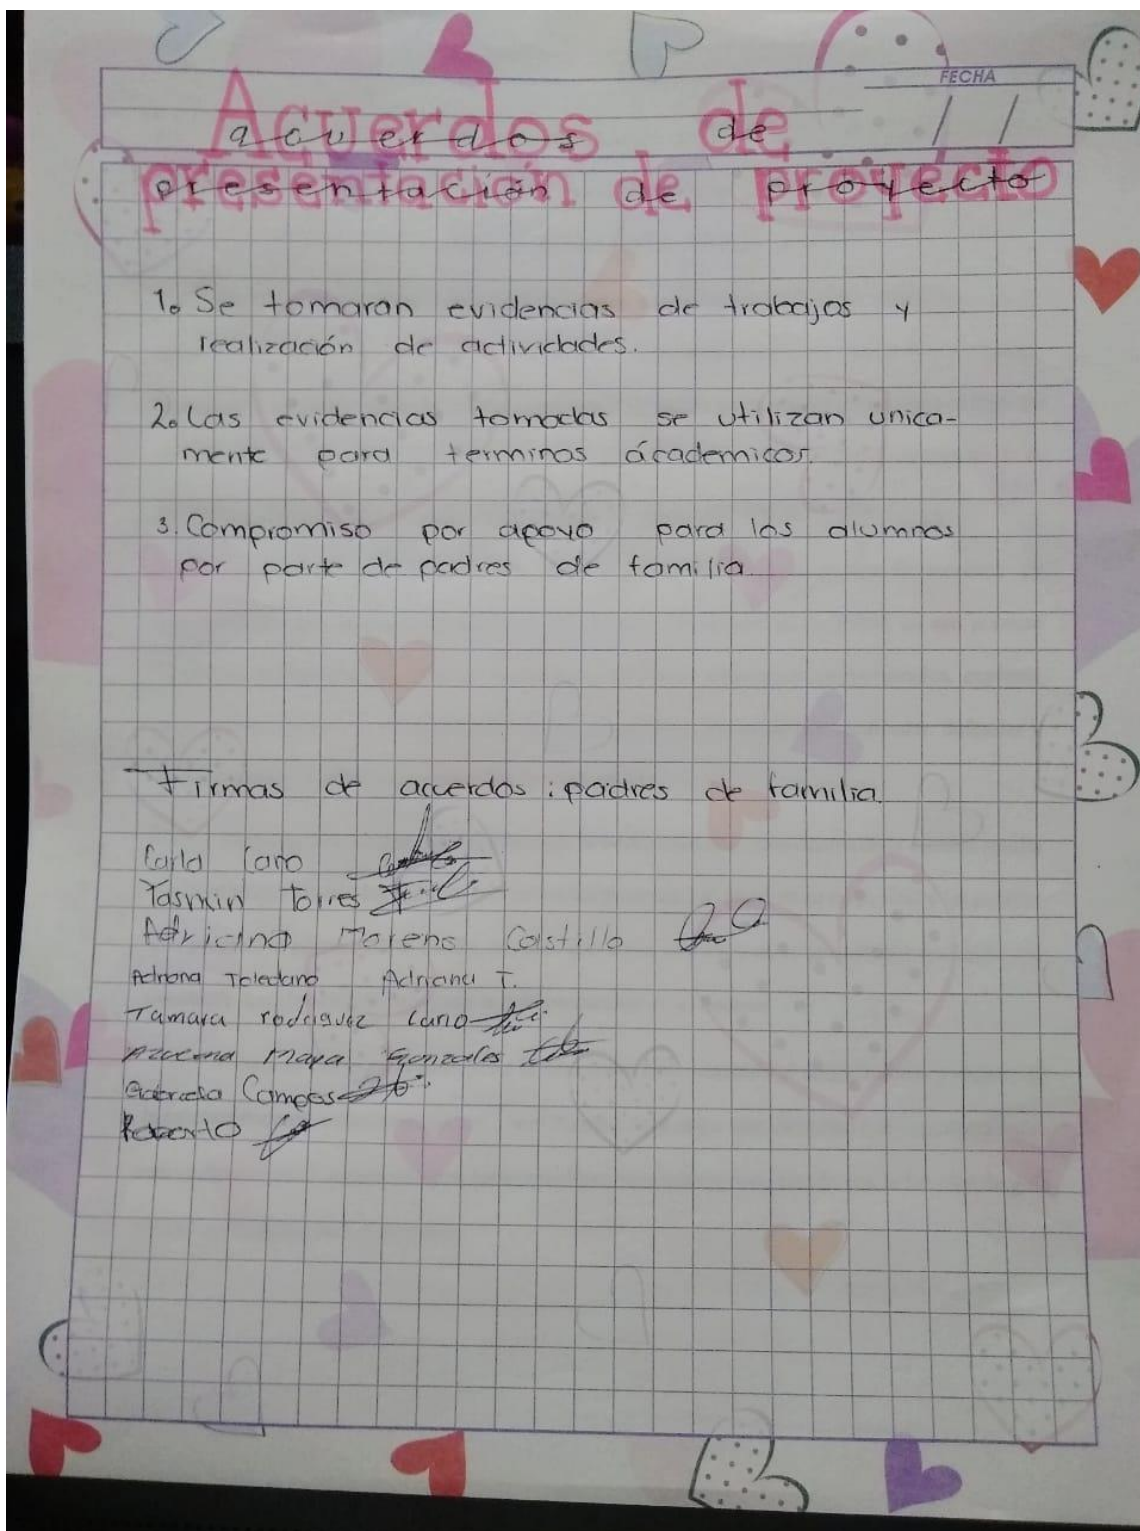 FECHA
/ /
Acuerdos de
presentación de proyecto
1. Se tomaran evidencias de trabajos y
realización de actividades.
2. Las evidencias tomadas se utilizan unica-
mente para terminos ácademicos.
3. Compromiso por apoyo para los alumnos
por parte de padres de familia
Firmas de acuerdos: padres de familia.
Carla Cano
Yasmin Torres
Adriana Moreno Castillo
Adriana Toledano Adriana T.
Tamara rodriguez Cano
Azucena Maya Gonzales
Gabriela Campos
Roberto